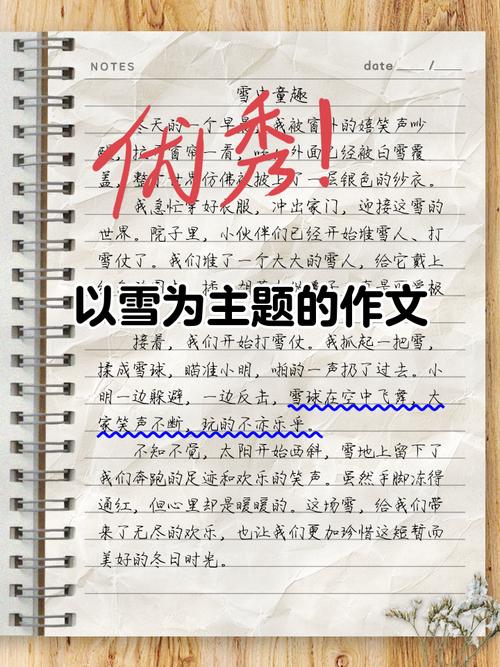 NOTES
date ____ / ____
雪中童趣
优秀!
冬天的一个早晨，我被窗外的嬉笑声吵
醒，拉开窗帘一看，外面已经被白雪覆
盖，整个世界仿佛被披上了一层银色的纱衣。
我急忙穿好衣服，冲出家门，迎接这雪的
世界。院子里，小伙伴们已经开始堆雪人、打
雪仗了。我们堆了一个大大的雪人，给它戴上
以雪为主题的作文
接着，我们开始打雪仗。我抓起一把雪，
揉成雪球，瞄准小明，啪的一声扔了过去。小
明一边躲避，一边反击，雪球在空中飞舞，大
家笑声不断，玩的不亦乐乎。
不知不觉，太阳开始西斜，雪地上留下了
我们奔跑的足迹和欢乐的笑声。虽然手脚冻得
通红，但心里却是暖暖的。这场雪，给我们带
来了无尽的欢乐，也让我们更加珍惜这短暂而
美好的冬日时光。